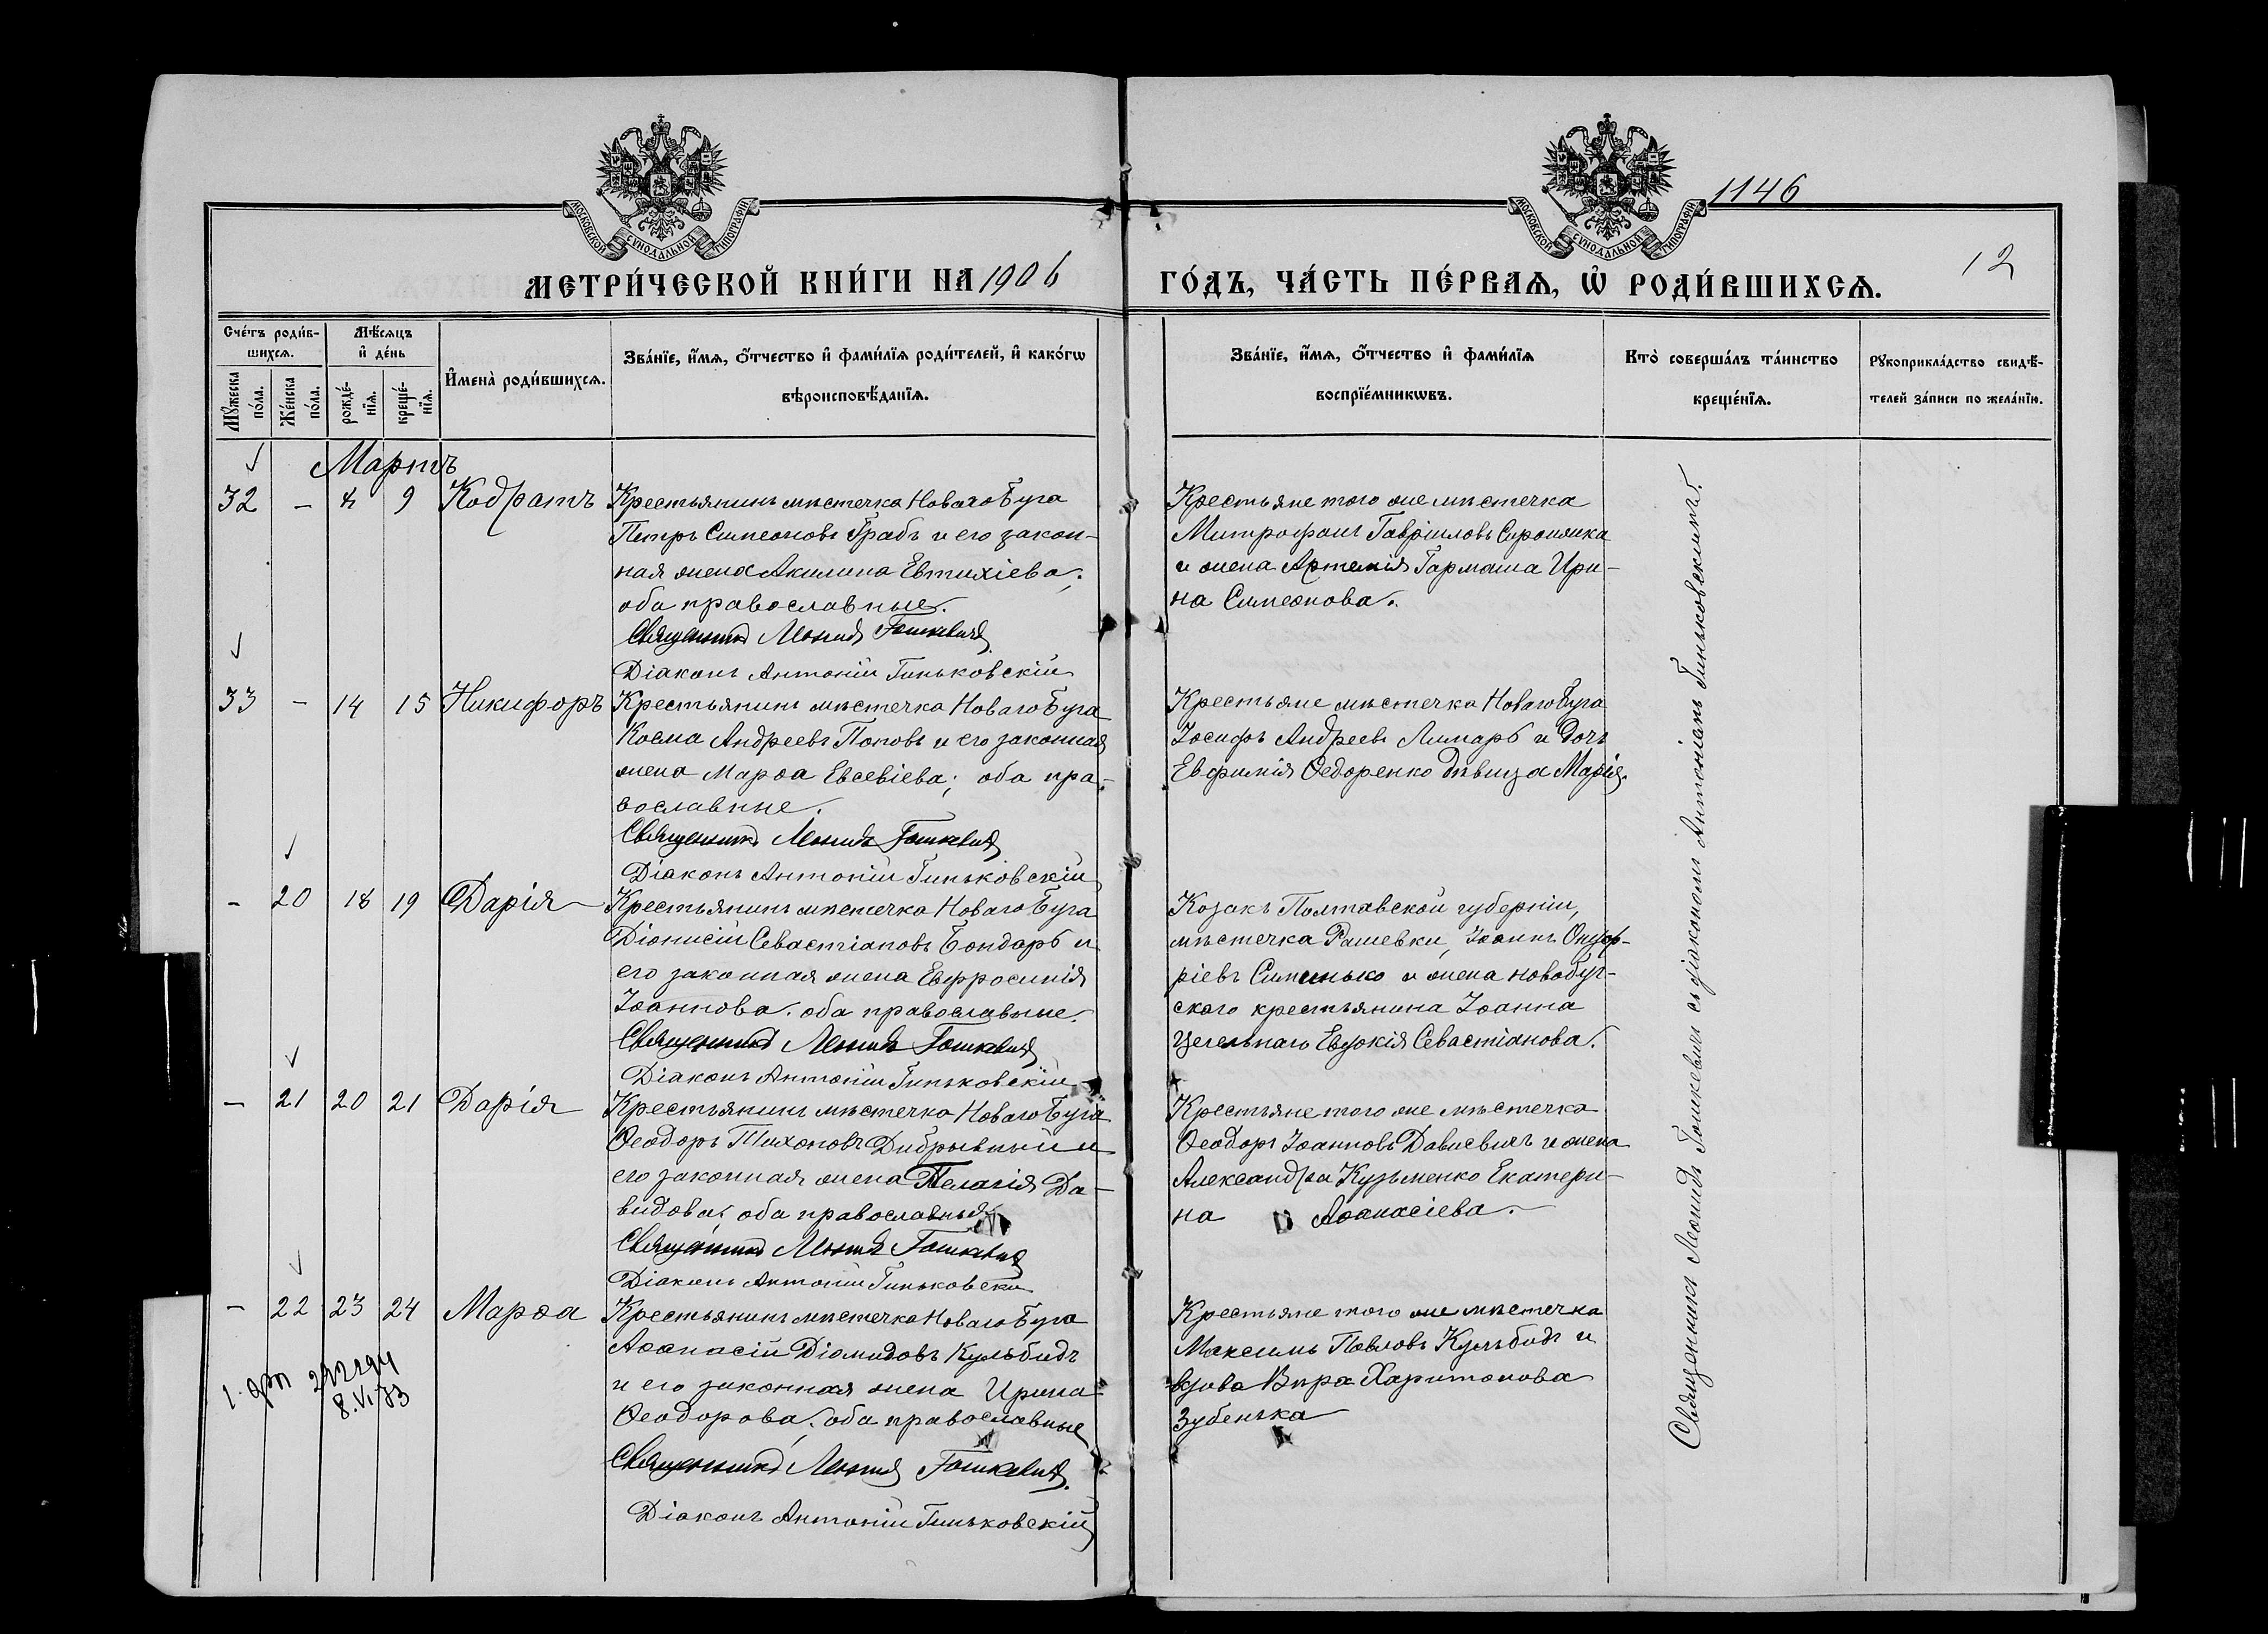 1146
МОСКОВСКОЙ СѴНОДАЛЬНОЙ ТИПОГРАФІИ
МОСКОВСКОЙ СѴНОДАЛЬНОЙ ТИПОГРАФІИ
МЕТРИ́ЧЕСКОЙ КНИ́ГИ НА 1906 ГО́ДЪ, ЧА́СТЬ ПЕ́РВАѦ, Ѡ҆ РОДИ́ВШИХСѦ.
12
Сче́тъ роди́в-
шихсѧ.
Мꙋ́жеска
по́ла.
Же́нска
по́ла.
Мѣ́сѧцъ
и҆ де́нь
рожде́-
нїѧ.
креще́-
нїѧ.
И҆мена̀ роди́вшихсѧ.
Зва́нїе, и҆́мѧ, ѻ҆́тчество и҆ фами́лїѧ роди́телей, и҆ како́гѡ
вѣроисповѣ́данїѧ.
Зва́нїе, и҆́мѧ, ѻ҆́тчество и҆ фами́лїѧ
воспрїе́мникѡвъ.
Кто̀ соверша́лъ та́инство
креще́нїѧ.
Рꙋкоприкла́дство свидѣ́-
телей за́писи по жела́нїю.
Мартъ
32 - 4 9 Кодратъ
Крестьянинъ мѣстечка Новаго Буга
Петръ Симеоновъ Грабъ и его закон-
ная жена Акилина Евтихіева;
оба православные.
Священникъ Леонидъ Гошкевичъ
Діаконъ Антоній Гиньковскій
Крестьяне того же мѣстечка
Митрофанъ Гавріиловъ
и жена Артемія Гармаша Ири-
на Симеонова.
33 - 14 15 Никифоръ
Крестьянинъ мѣстечка Новаго Буга
Косма Андреевъ Поповъ и его законная
жена Марѳа Евсевіева; оба пра-
вославные.
Священникъ Леонидъ Гошкевичъ
Діаконъ Антоній Гиньковскій
Крестьяне мѣстечка Новаго Буга
Іосифъ Андреевъ Лимарь и дочь
Евфимія Ѳедоренко дѣвица Марія.
- 20 18 19 Дарія
Крестьянинъ мѣстечка Новаго Буга
Діонисій Севастіановъ Бондарь и
его законная жена Евфросинія
Іоаннова. оба православные.
Священникъ Леонидъ Гошкевичъ
Діаконъ Антоній Гиньковскій
Козакъ Полтавской губерніи,
мѣстечка Рашевки, Іоаннъ Онуф-
ріевъ Симинько и жена новобуг-
ского крестьянина Іоанна
Цегельнаго Евдокія Севастіанова.
- 21 20 21 Дарія
Крестьянинъ мѣстечка Новаго Буга
Ѳеодоръ Тихоновъ Дибрывный и
его законная жена Пелагія Да-
видова; оба православные
Священникъ Леонидъ Гошкевичъ
Діаконъ Антоній Гиньковскій
Крестьяне того же мѣстечка
Ѳеодоръ Іоанновъ Давиевичъ и жена
Александра Кузьменко Екатери-
на Аѳанасіева.
- 22 23 24 Марѳа
Крестьянинъ мѣстечка Новаго Буга
Аѳанасій Діомидовъ Кульбидъ
и его законная жена Ирина
Ѳеодорова; оба православные
Священникъ Леонидъ Гошкевичъ
Діаконъ Антоній Гиньковскій
Крестьяне того же мѣстечка
Максимъ Павловъ Кульбидъ и
вдова Вѣра Харитонова
Зубенька
8.VI.73
Священникъ Леонидъ Гошкевичъ съ діакономъ Антоніемъ Гиньковскимъ.